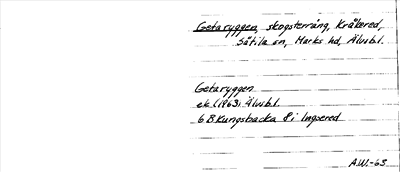 Getaryggen, skogsterräng, Kråkered,
Sätila sn, Marks hd, Älvsbl.
Getaryggen
ek. (1963) Älvsbl.
6 B Kungsbacka 8 i Ingsered
A.W.-63